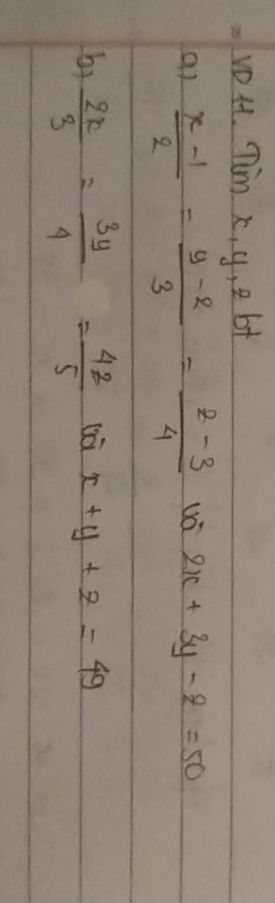 - VD H. Tìm x, y, z bt
a) x - 1 / 2 = y - 2 / 3 = z - 3 / 4 và 2x + 3y - z = 50
b) 2x / 3 = 3y / 4 = 4z / 5 và x + y + z = 49